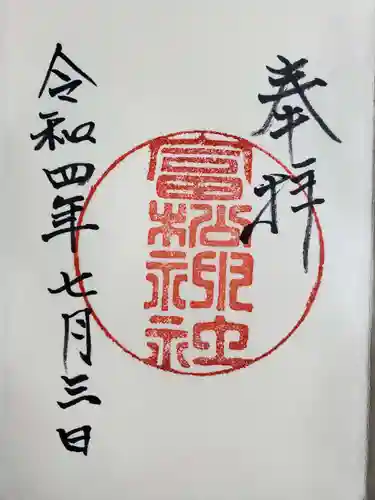 奉拝
富松神社
令和四年七月三日